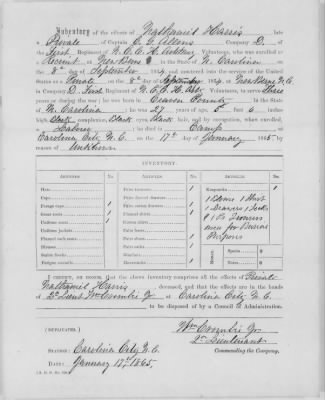 Inventory of the effects of Nathaniel Harris late
a Private of Captain C. C. Allen's Company D, of the
First Regiment of N.C.C.H. Artillery Volunteers, who was enrolled
as Recruit at New Berne in the State of N. Carolina on
the 8th day of September 1864 and mustered into the service of the United
States as Private on the 8th day of September 1864, at New Berne N.C.
in Company D, First Regiment of N.C.C.H. Art Volunteers, to serve Three
years or during the war; he was born in Craven County in the State
of N. Carolina; he was 27 years of age, 5 feet 6 inches
high, Black complexion, Black eyes, Black hair, and by occupation, when enrolled,
a Laborer; he died in Camp at
Carolina City N.C. on the 17th day of January 1865 by
reason of Unknown
INVENTORY.
Articles. No. Articles. No. Articles. No.
Hats
Caps 1
Forage caps
Great coats 1
Uniform coats
Uniform jackets
Flannel sack coats
Blouses 1
Stable frocks
Fatigue overalls
Pairs trowsers 1
Pairs flannel drawers
Pairs cotton drawers 1
Flannel shirts
Cotton shirts
Pairs boots
Pairs shoes 1
Pairs socks
Blankets 1
Haversacks 1
Knapsacks 1
1 Blouse 1 Shirt
1 Drawers 1 Socks
& 1 Pr Trowsers
used for Burial
Purposes
Money
Specie $
Notes $
I CERTIFY, ON HONOR, that the above inventory comprises all the effects of Private
Nathaniel Harris, deceased, and that the effects are in the hands
of 2d Lieut Wm Coombs Jr at Carolina City N.C.
to be disposed of by a Council of Administration.
(DUPLICATES.)
Wm Coombs Jr
2d Lieutenant
Commanding the Company.
STATION: Carolina City N.C.
DATE: January 17th 1865.